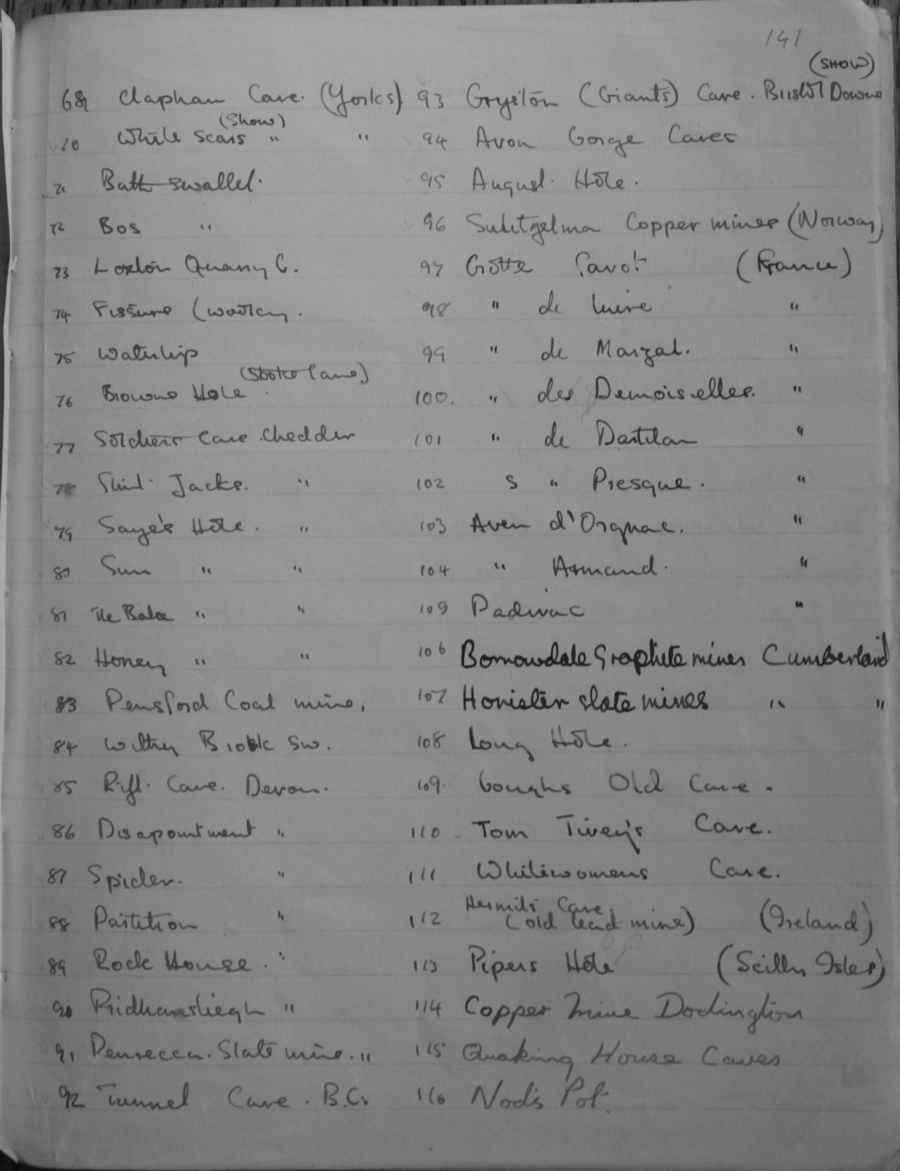 141
69 Clapham Cave. (Yorks)
70 White Scars (Show) " "
71 Bath swallet.
72 Bos "
73 Loxton Quarry C.
74 Fissure (wookey.
75 Waterlip
76 Browns Hole (Stoke Lane)
77 Soldiers Cave Chedder
78 Flint Jacks. "
79 Saye's Hole. "
80 Sun " "
81 " "
82 Honey " "
83 Pensford Coal mine.
84 Brook Sw.
85 Rift. Cave. Devon.
86 Disapointment "
87 Spider. "
88 Partition "
89 Rock House. "
90 Pridhamsliegh "
91 Penrecca. Slate mine. "
92 Tunnel Cave. B.C.
93 Gryston (Giants) Cave. Bristol Downs (SHOW)
94 Avon Gorge Caves
95 August. Hole.
96 Sulitzelma Copper mines (Norway)
97 Gotte (France)
98 " de "
99 " de Marzal. "
100. " des Demoiselles. "
101 " de Dartilan "
102 S " Presque. "
103 Aven d'Orgnac. "
104 " Armand. "
105 Padirac "
106 Borrowdale Graphite mines Cumberland
107 Honister slate mines " "
108 Long Hole.
109. Goughs Old Cave.
110 Tom Tivey's Cave.
111 Whitewomens Cave.
112 Hermits Cave (old lead mine) (Ireland)
113 Pipers Hole (Scilly Isles)
114 Copper Mine Dodington
115 Quaking House Caves
116 Nod's Pot.